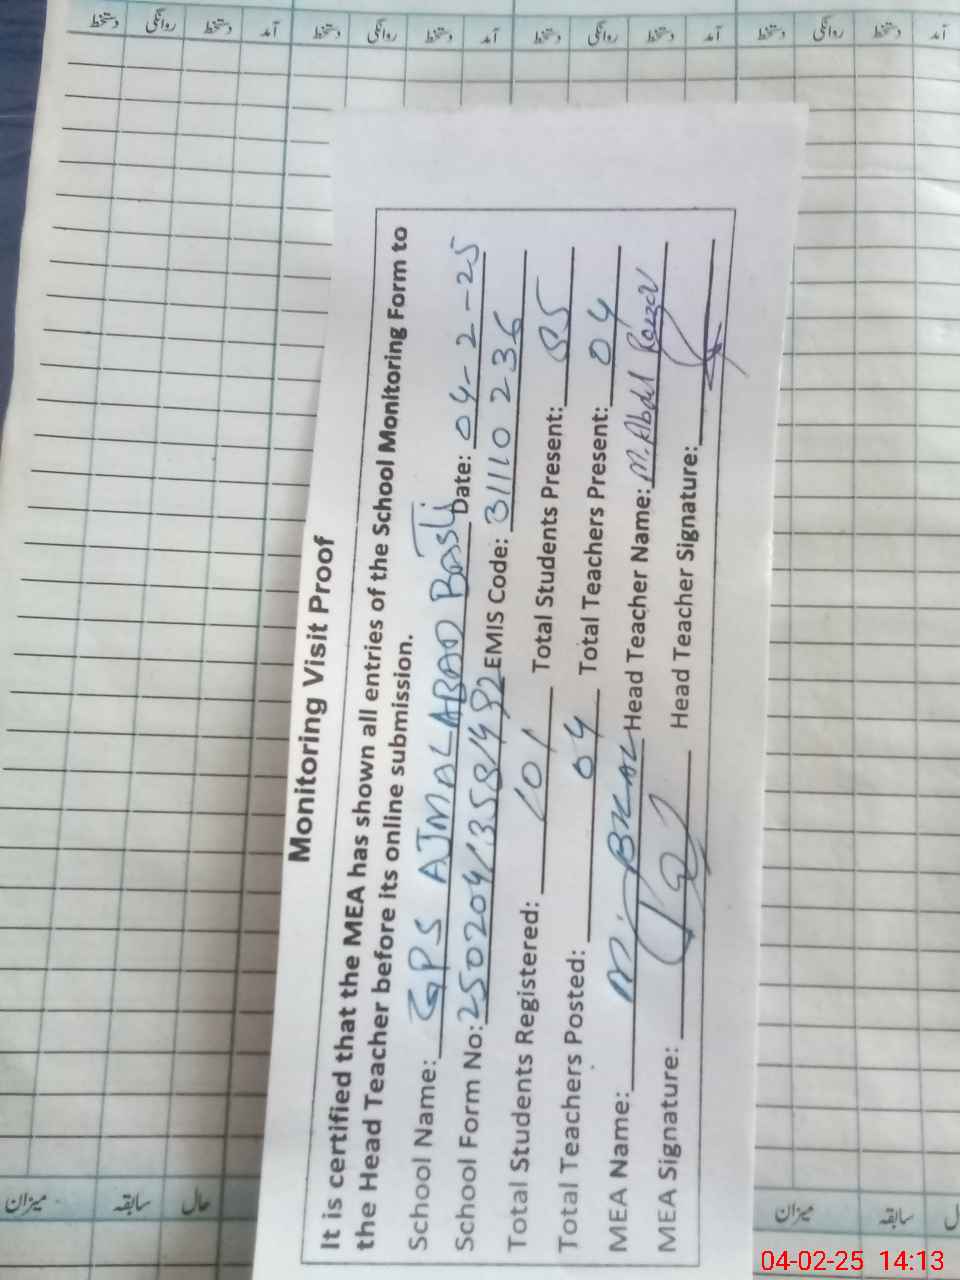 دستخط روانگی دستخط آمد دستخط روانگی دستخط آمد دستخط روانگی دستخط آمد دستخط روانگی دستخط آمد
Monitoring Visit Proof
It is certified that the MEA has shown all entries of the School Monitoring Form to
the Head Teacher before its online submission.
School Name: GPS AJMALABAD BASTI Date: 04-2-25
School Form No: EMIS Code: 31110236
Total Students Registered: 101 Total Students Present: 85
Total Teachers Posted: 04 Total Teachers Present: 04
MEA Name: M. BILAL Head Teacher Name: M. Abdul
MEA Signature: Head Teacher Signature:
میزان سابقہ حال میزان سابقہ
04-02-25 14:13